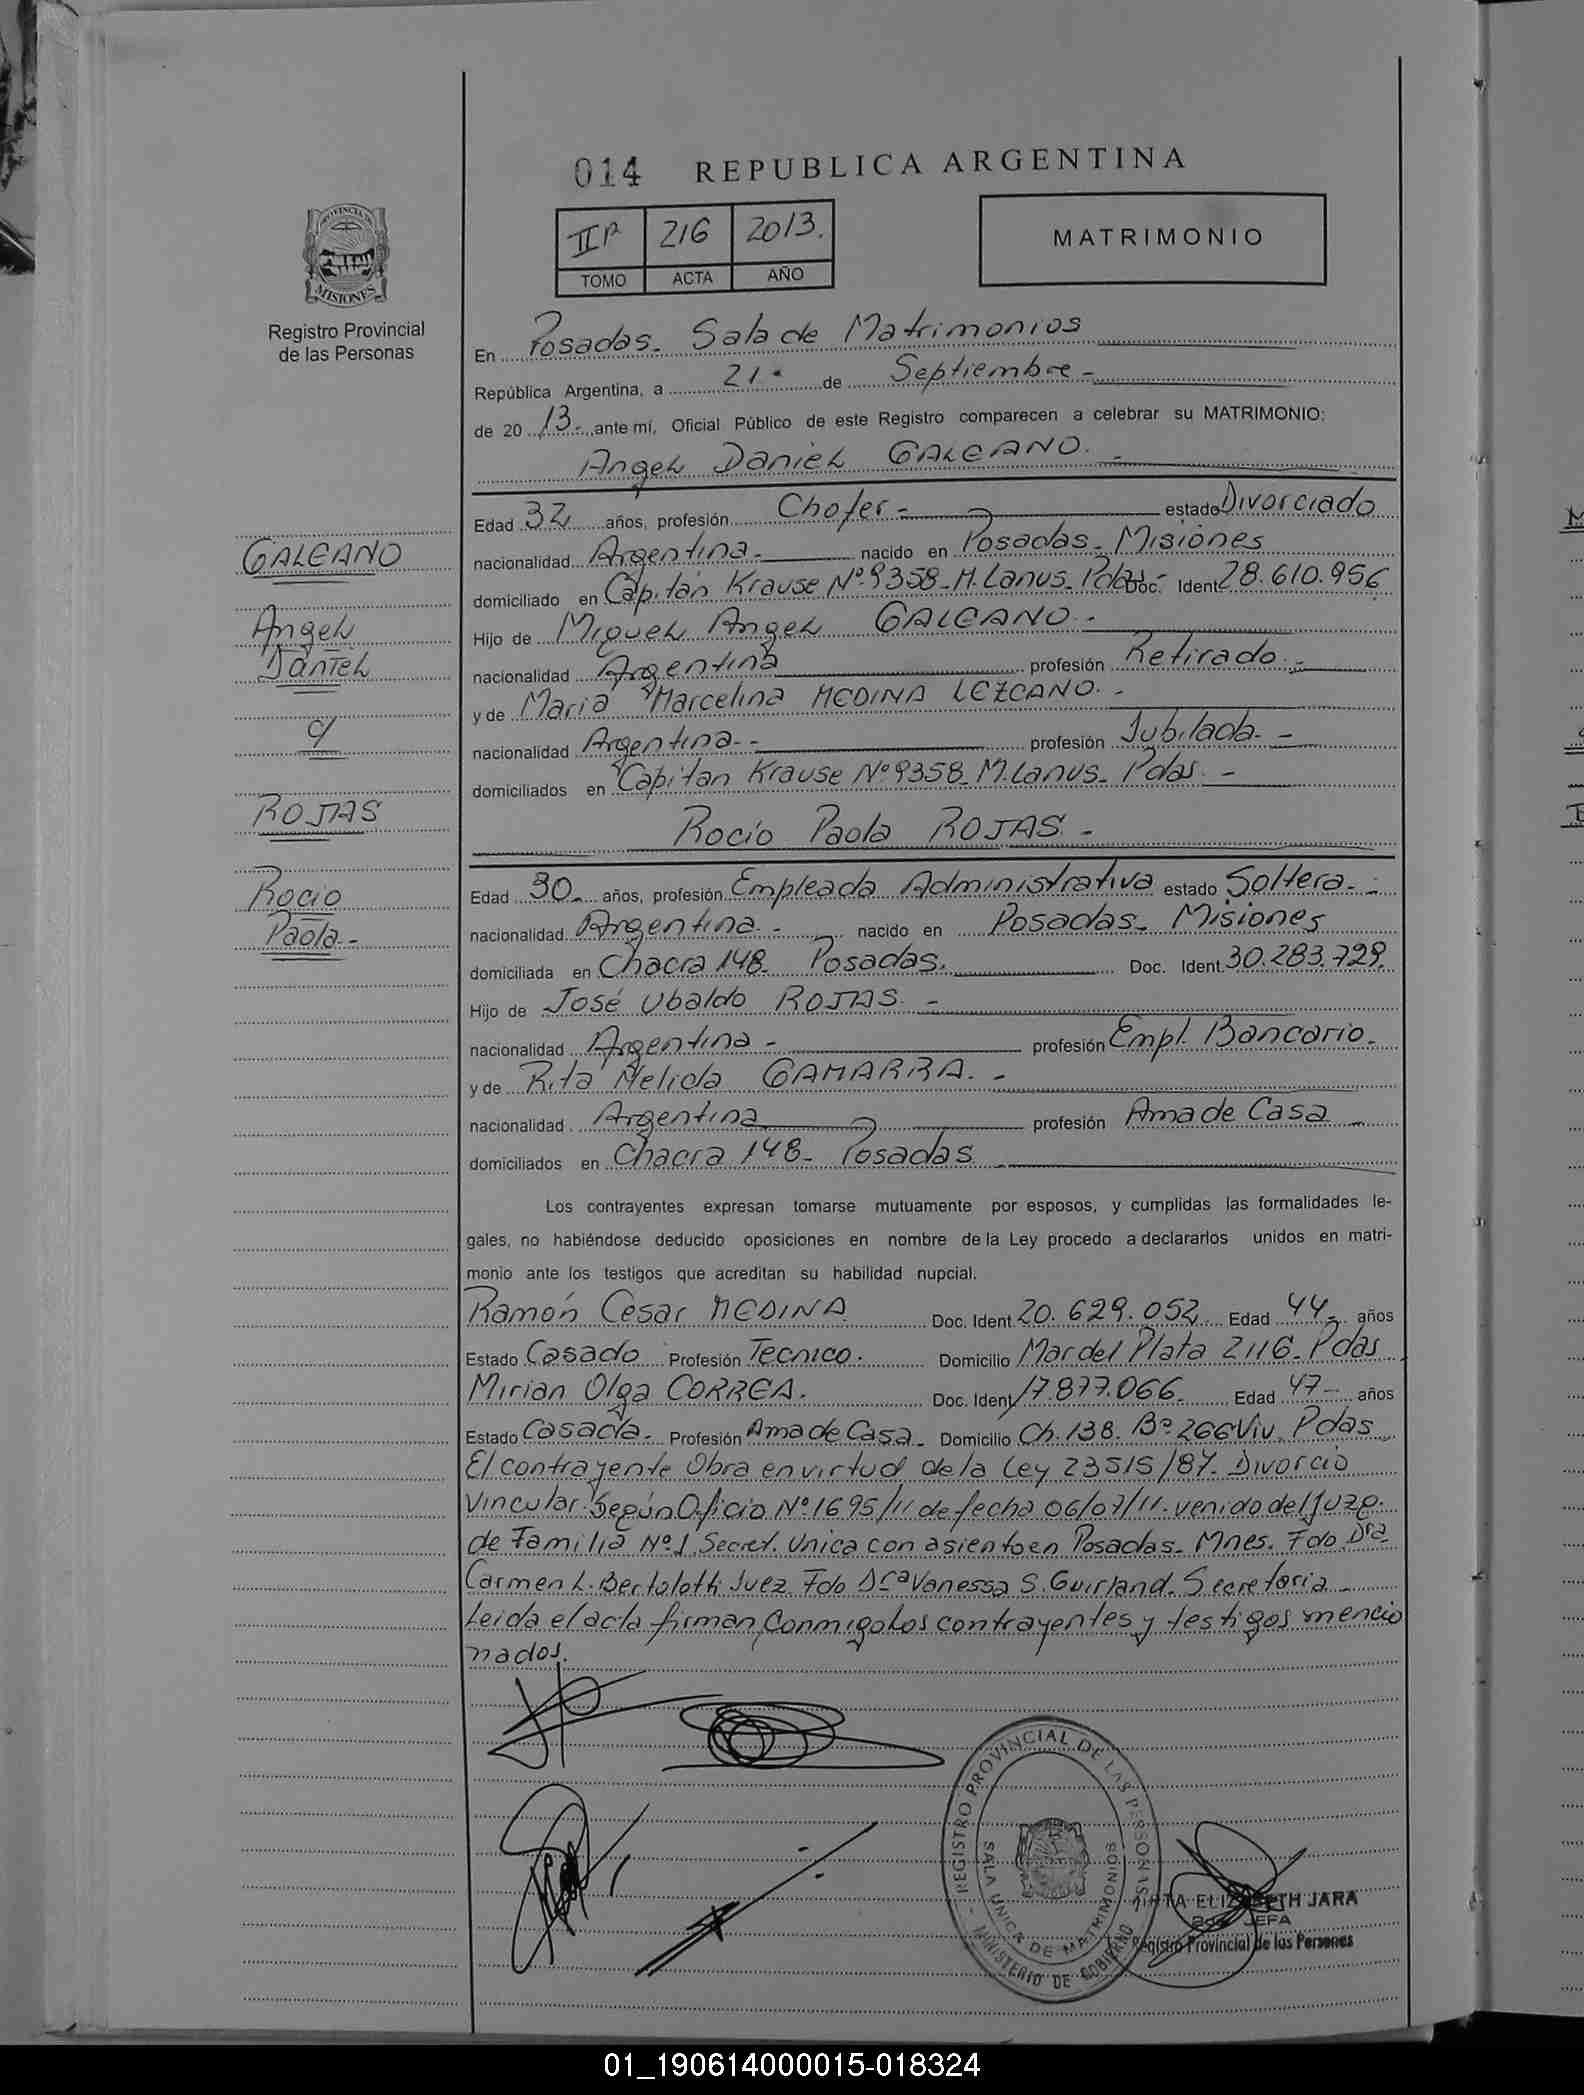 014 REPUBLICA ARGENTINA
PROVINCIA DE
MISIONES
Registro Provincial
de las Personas
216 2013.
TOMO ACTA AÑO
MATRIMONIO
En Posadas. Sala de Matrimonios
República Argentina, a 21. de Septiembre -
de 20 13- ante mí, Oficial Público de este Registro comparecen a celebrar su MATRIMONIO:
Angel Daniel GALEANO. -
Edad 32 años, profesión Chofer - estado Divorciado
nacionalidad Argentina. nacido en Posadas. Misiones
domiciliado en Capitán Krause Nº 9358- M. Lanus. Pdas- Doc. Ident 28.610.956
Hijo de Miguel Angel GALEANO. -
nacionalidad Argentina profesión Retirado. -
y de Maria Marcelina MEDINA LEZCANO. -
nacionalidad Argentina. - profesión Jubilada. -
domiciliados en Capitan Krause Nº 9358 M. Lanus. Pdas. -
Rocío Paola ROJAS. -
GALEANO
Angel
Daniel
c/
ROJAS
Rocio
Paola. -
Edad 30. años, profesión Empleada Administrativa estado Soltera. -
nacionalidad Argentina. - nacido en Posadas. Misiones
domiciliada en Chacra 148. Posadas. Doc. Ident. 30.283.729.
Hijo de José Ubaldo ROJAS. -
nacionalidad Argentina - profesión Empl. Bancario.
y de Rita Nelida GAMARRA. -
nacionalidad Argentina profesión Ama de Casa -
domiciliados en Chacra 148- Posadas
Los contrayentes expresan tomarse mutuamente por esposos, y cumplidas las formalidades le-
gales, no habiéndose deducido oposiciones en nombre de la Ley procedo a declararlos unidos en matri-
monio ante los testigos que acreditan su habilidad nupcial.
Ramón Cesar MEDINA Doc. Ident 20.629.052 Edad 44- años
Estado Casado Profesión Tecnico. Domicilio Mar del Plata 2116- Pdas
Mirian Olga CORREA. Doc. Ident 17.877.066 Edad 47- años
Estado Casada. Profesión Ama de Casa. Domicilio Ch. 138. Bº 266 Viv. Pdas
El contrayente Obra en virtud de la Ley 23515/87. Divorcio
Vincular. Según Oficio Nº 1695/11 de fecha 06/07/11. venido del Juzg.
de Familia Nº 1. Secret. Unica con asiento en Posadas. Mnes. Fdo. Dra
Carmen L. Bertolotti Juez Fdo Dra Vanessa S. Guirland. Secretaria
Leida el acta firman Conmigo Los contrayentes y testigos mencio
nados.
REGISTRO PROVINCIAL DE LAS PERSONAS
SALA UNICA DE MATRIMONIOS
MINISTERIO DE GOBIERNO
ELIZABETH JARA
JEFA
Registro Provincial de las Personas
01_190614000015-018324